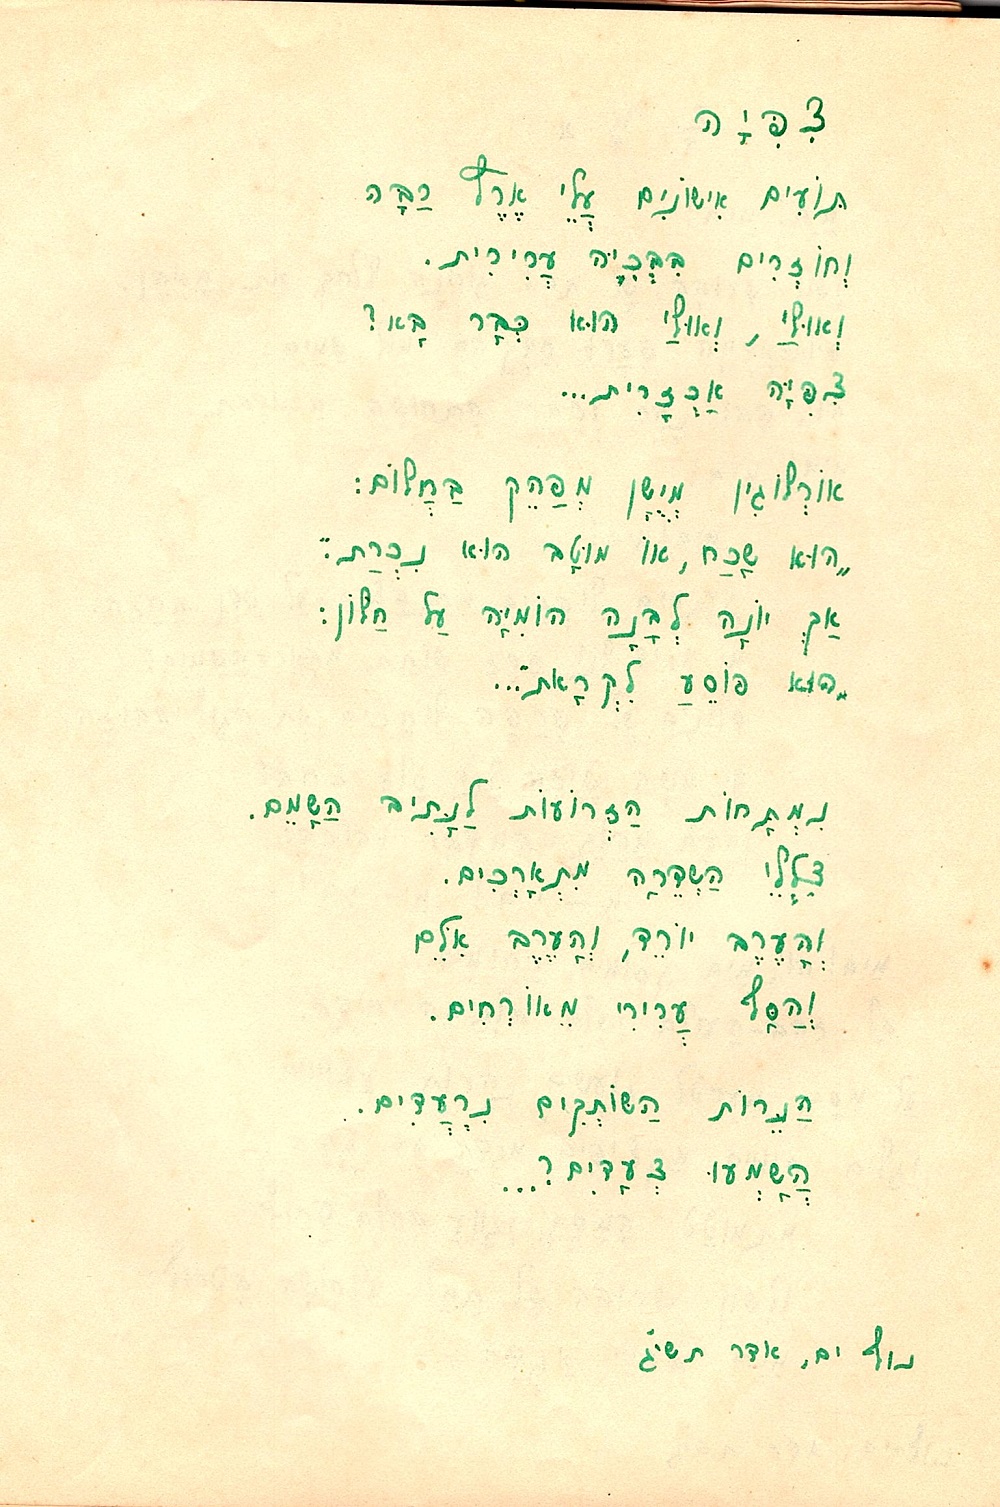 צִפִּיָּה
תּוֹעִים אִישׁוֹנִים עֲלֵי אֶרֶץ רַבָּה
וְחוֹזְרִים בִּבְכִיָּה עֲרִירִית.
וְאוּלַי, וְאוּלַי הוּא כְּבָר בָּא?
צִפִּיָּה אַכְזָרִית...
אוֹרְלוֹגִין מְיֻשָּׁן מְפַהֵק בַּחֲלוֹם:
„הוּא שָׁכַח, אוֹ מוּטָב הוּא נִכְרַת."
אַךְ יוֹנָה לְבָנָה הוֹמִיָּה עַל חַלּוֹן:
„הוּא פּוֹסֵעַ לִקְרָאת"...
נִמְתָּחוֹת הַזְּרוֹעוֹת לַנָּתִיב הַשָּׁמֵם.
צִלְלֵי הַשְּׂדֵרָה מִתְאָרְכִים.
וְהָעֶרֶב יוֹרֵד, וְהָעֶרֶב אִלֵּם
וְהַסָּף עֲרִירִי מֵאוֹרְחִים.
הַנֵּרוֹת הַשּׁוֹתְקִים נִרְעָדִים.
הֲשָׁמְעוּ צְעָדִים?...
נוף ים, אדר תשי"ג